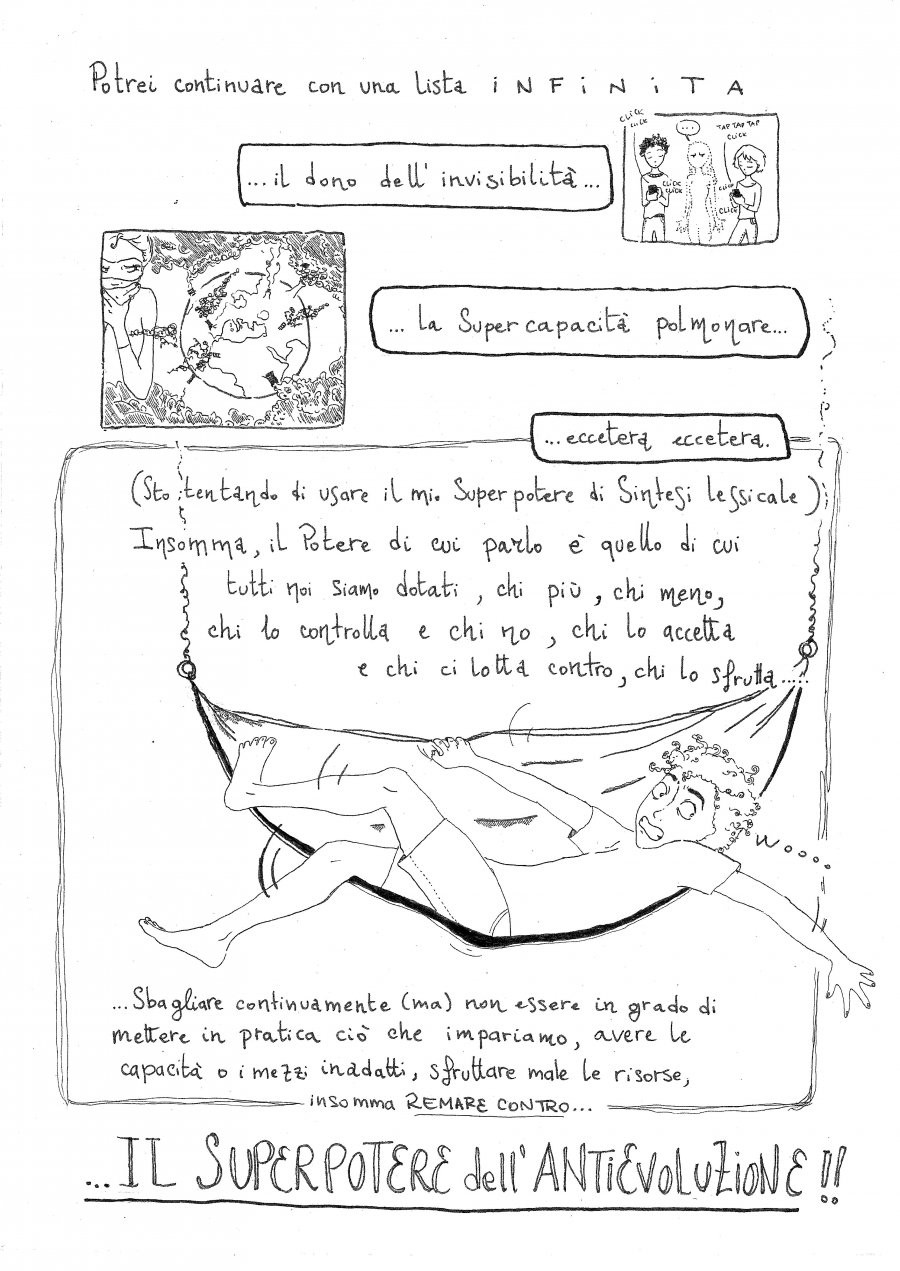 Potrei continuare con una lista iNFiNiTA
CLiCK
CLiCK
...
TAP TAP TAP
CLiCK
...il dono dell'invisibilità...
CLiCK
CLiCK
CLiCK
CLiCK
... la Supercapacità polmonare...
...eccetera eccetera..
(Sto tentando di usare il mio Superpotere di Sintesi lessicale)
Insomma, il Potere di cui parlo è quello di cui
tutti noi siamo dotati, chi più, chi meno,
chi lo controlla e chi no, chi lo accetta
e chi ci lotta contro, chi lo sfrutta.....
Woooo
...Sbagliare continuamente (ma) non essere in grado di
mettere in pratica ciò che impariamo, avere le
capacità o i mezzi inadatti, sfruttare male le risorse,
insomma REMARE CONTRO...
...IL SUPERPOTERE dell'ANTiEVOLUZiONE!!